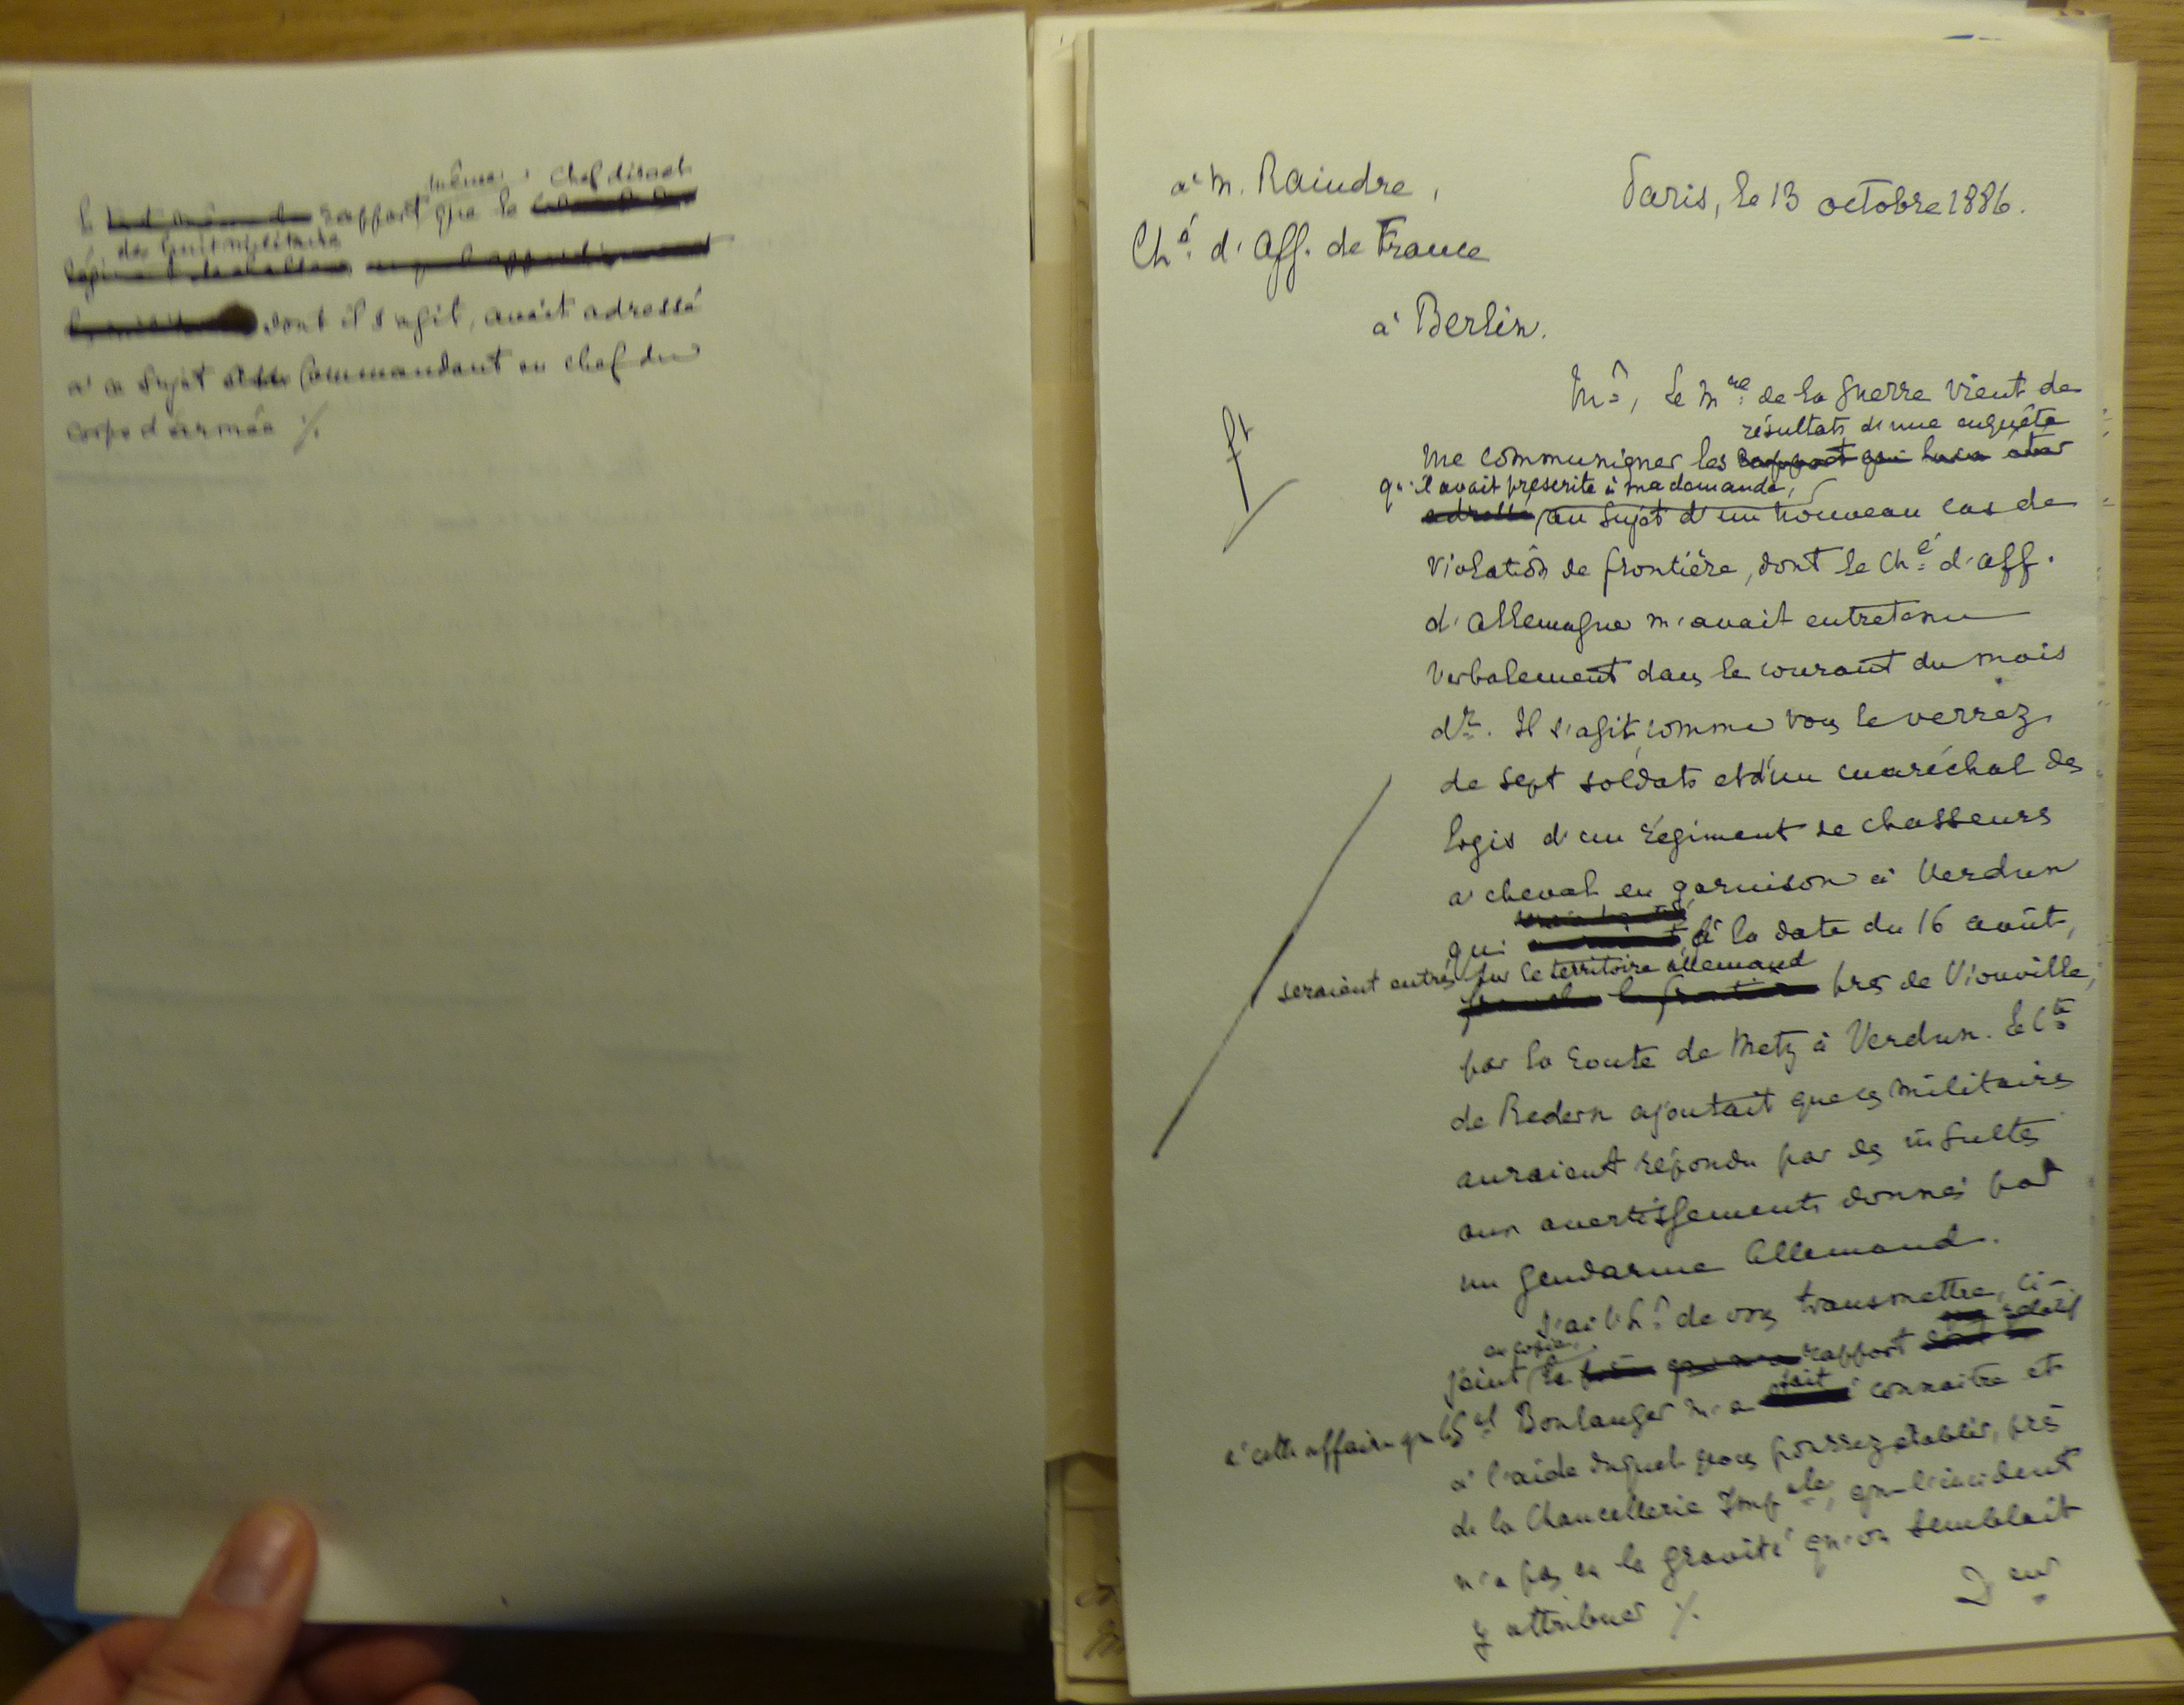 même chef direct
le rapport que le
de huit militaire
dont il s'agit, avait adressé
à ce sujet au Commandant en chef du
corps d'armée ./.
à M. Raindre,
Paris, le 13 octobre 1886.
Ché d'Aff. de France
à Berlin.
Mr, le Mre de la guerre vient de
résultats d'une enquête
me communiquer les rapport qui lui a été
qu'il avait prescrite à ma demande,
adressé, au sujet d'un nouveau cas de
violation de frontière, dont le Ché d'aff.
d'Allemagne m'avait entretenu
verbalement dans le courant du mois
dr. Il s'agit, comme vous le verrez,
de sept soldats et d'un maréchal des
logis d'un régiment de chasseurs
à cheval en garnison à Verdun
qui à la date du 16 août,
seraient entrés sur le territoire allemand
franchi la frontière près de Vionville,
par la route de Metz à Verdun. Le Cte
de Redern ajoutait que ces militaires
auraient répondu par des insultes
aux avertissements donnés par
un gendarme Allemand.
J'ai l'hr de vous transmettre, ci-
en copie, relatif
joint, le rapport
fait
à cette affaire que le Gal Boulanger m'a connaître et
à l'aide duquel vous pourrez établir, près
de la Chancellerie Impale, que l'incident
n'a pas eu la gravité qu'on semblait
y attribuer ./.